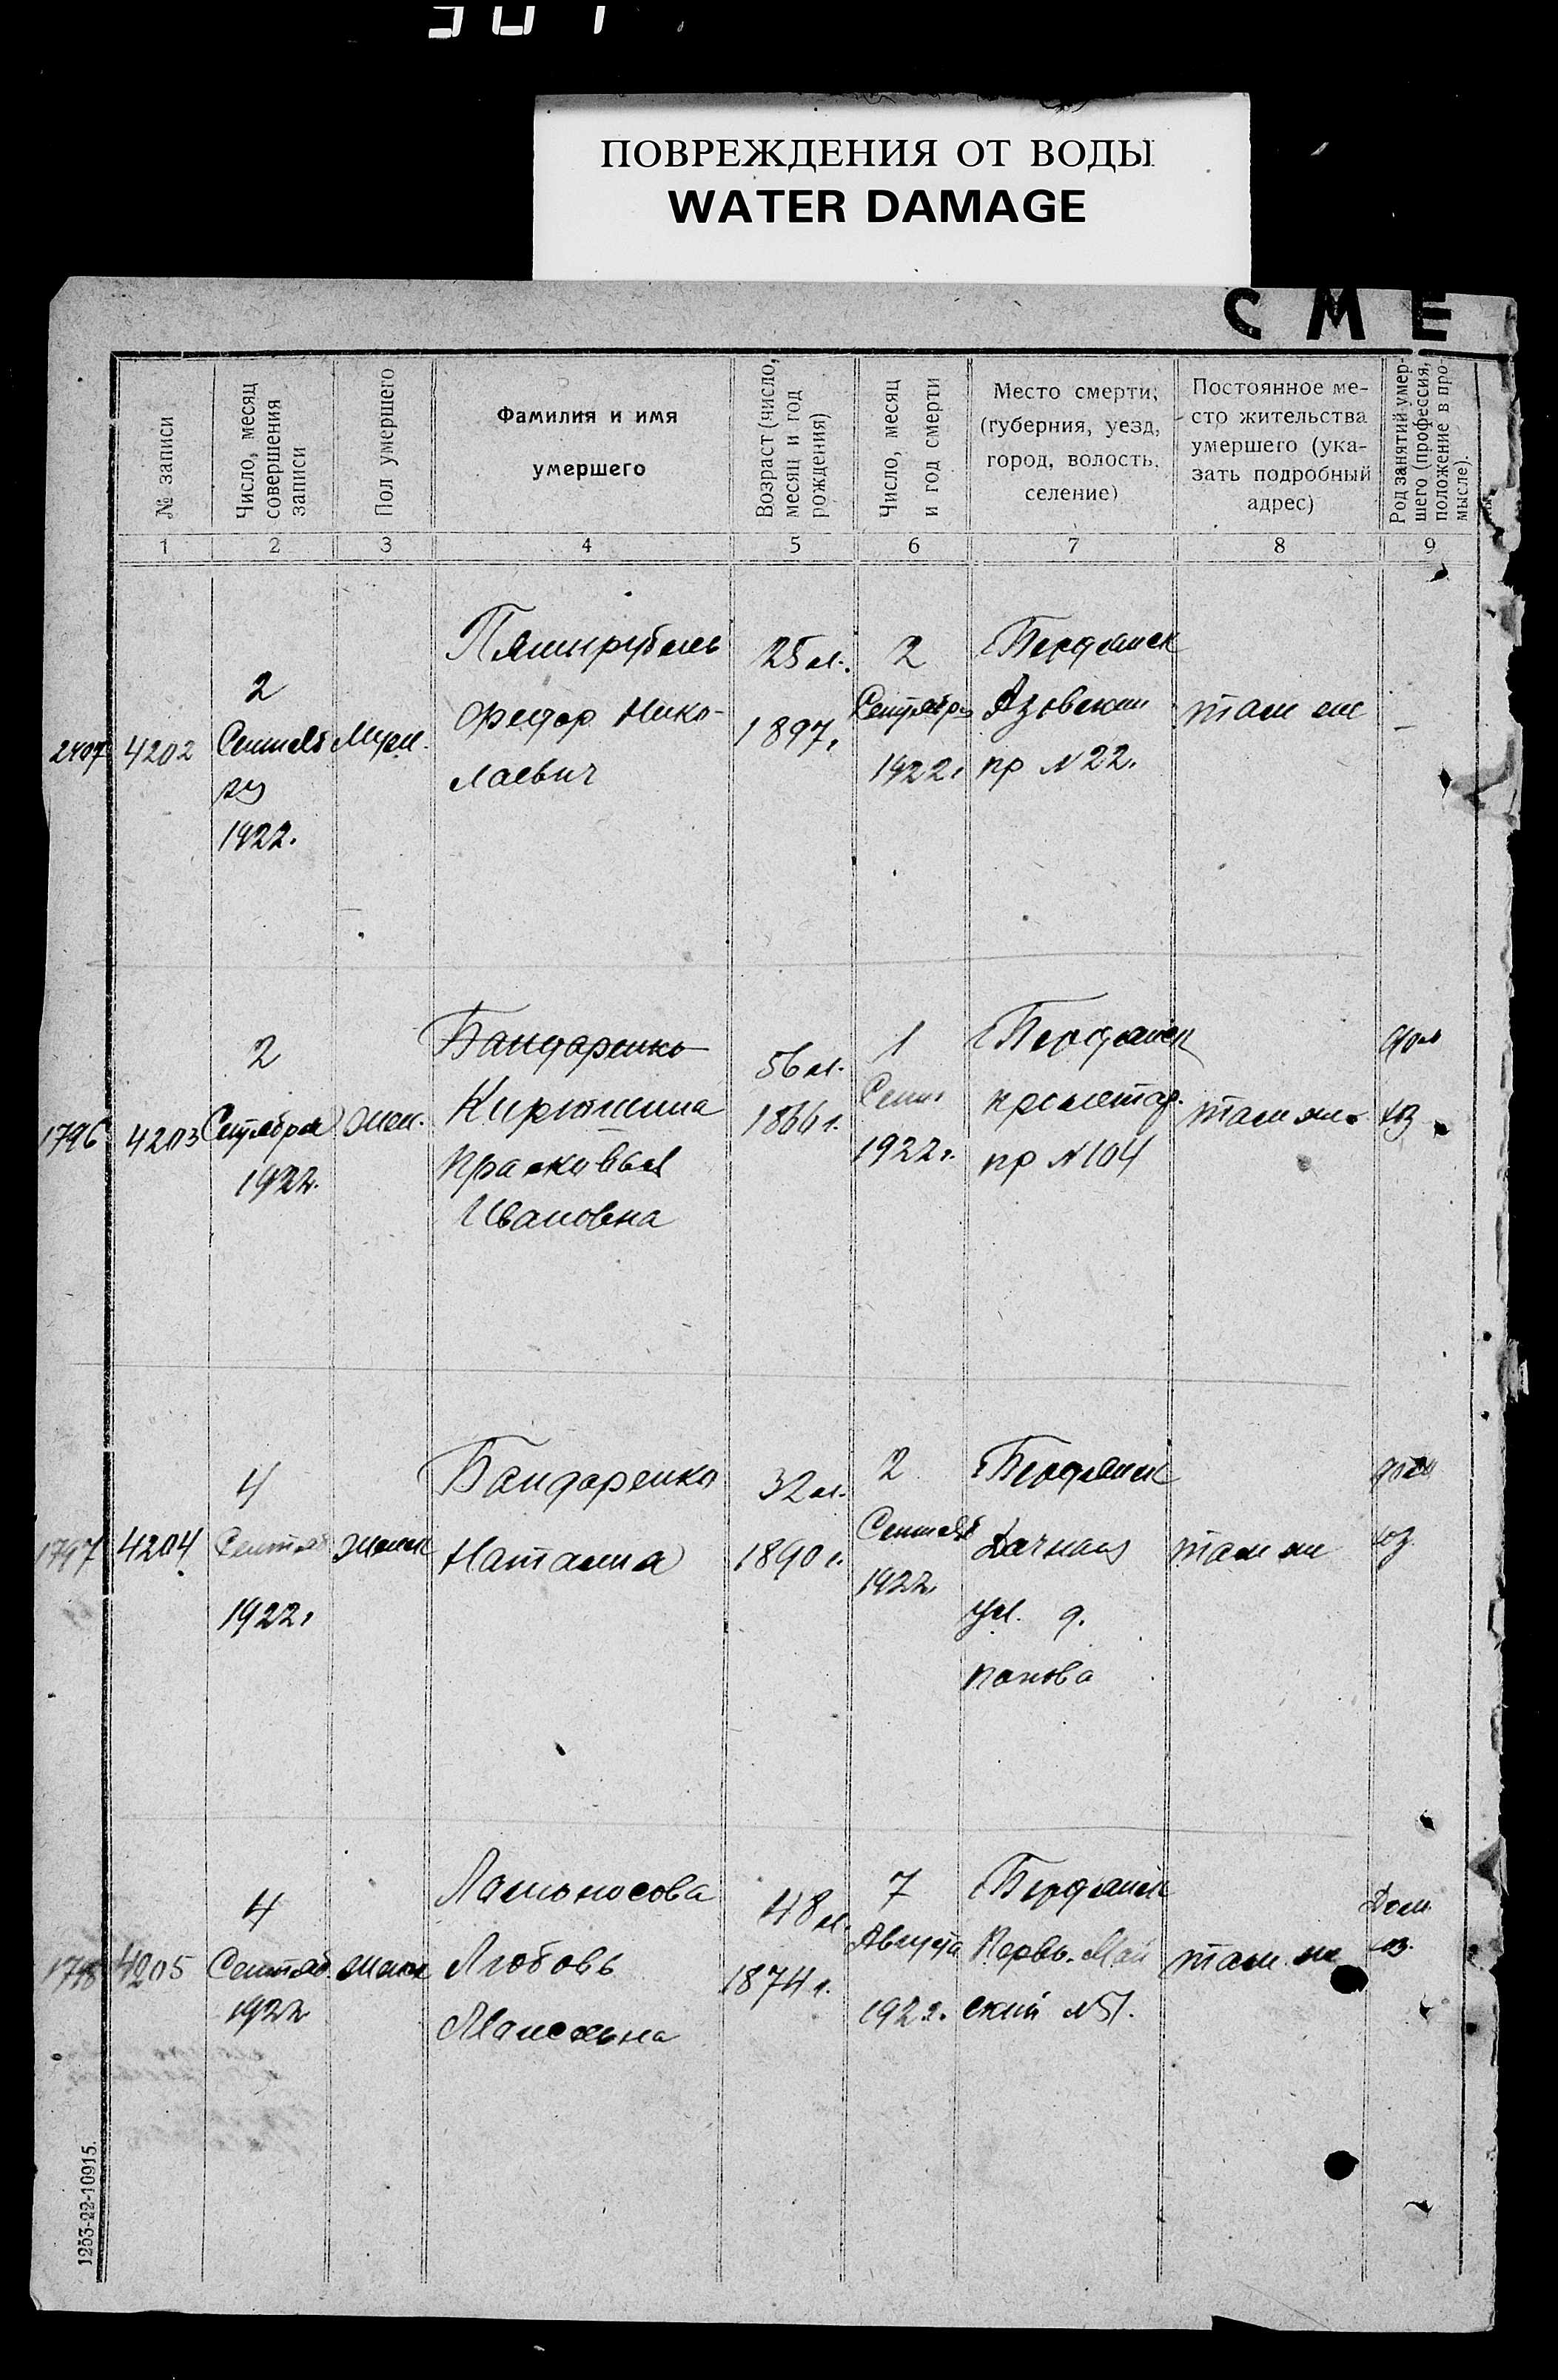 ПОВРЕЖДЕНИЯ ОТ ВОДЫ
WATER DAMAGE
С М Е
№ записи
Число, месяц
совершения
записи
Пол умершего
Фамилия и имя
умершего
Возраст (число,
месяц и год
рождения)
Число, месяц
и год смерти
Место смерти,
(губерния, уезд,
город, волость,
селение)
Постоянное ме-
сто жительства
умершего (ука-
зать подробный
адрес)
Род занятий умер-
шего (профессия,
положение в про-
мысле).
1 2 3 4 5 6 7 8 9
2407
4202
2
Сентяб
ря
1922.
Муж.
Пятирубель
Федор Нико-
лаевич
25 л.
1897.
2
Сентября
1922.
Бердянск
Азовский
пр N 22.
там же
—
1796
4203
2
Сентября
1922.
жен.
Бандаренко
Кирюшина
Прасковья
Ивановна
56 л.
1866 г.
1
Сент
1922 г.
Бердянск
пролетар.
пр N 104
там же
дом
хоз
1797
4204
4
Сентяб
1922.
женск
Бандаренко
Наталия
32 л.
1890 г.
2
Сентяб
1922.
Бердянск
Дачная
ул. д.
Панова
там же
дом
хоз.
1798
4205
4
Сентяб.
1922
женск
Ломоносова
Любовь
48 л.
1874 г.
7
Августа
1922.
Бердянск
Перво-Май
ский N 51.
там же
Дом.
хоз.
1253-22-10915.